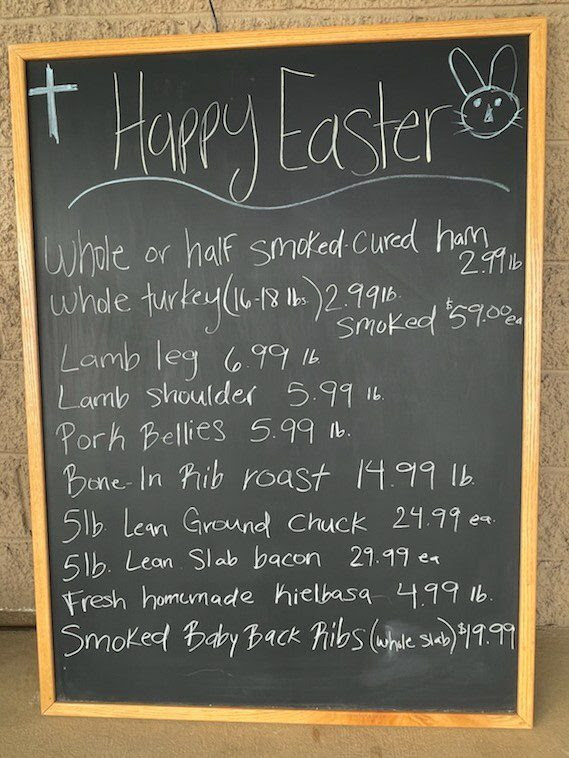 Happy Easter
Whole or half smoked-cured ham
2.99 lb
Whole turkey (16-18 lbs.) 2.99 lb.
smoked $59.00 ea
Lamb leg 6.99 lb.
Lamb shoulder 5.99 lb.
Pork Bellies 5.99 lb.
Bone-In Rib roast 14.99 lb.
5lb. Lean Ground chuck 24.99 ea.
5lb. Lean Slab bacon 29.99 ea
Fresh homemade kielbasa 4.99 lb.
Smoked Baby Back Ribs (whole slab) $19.99